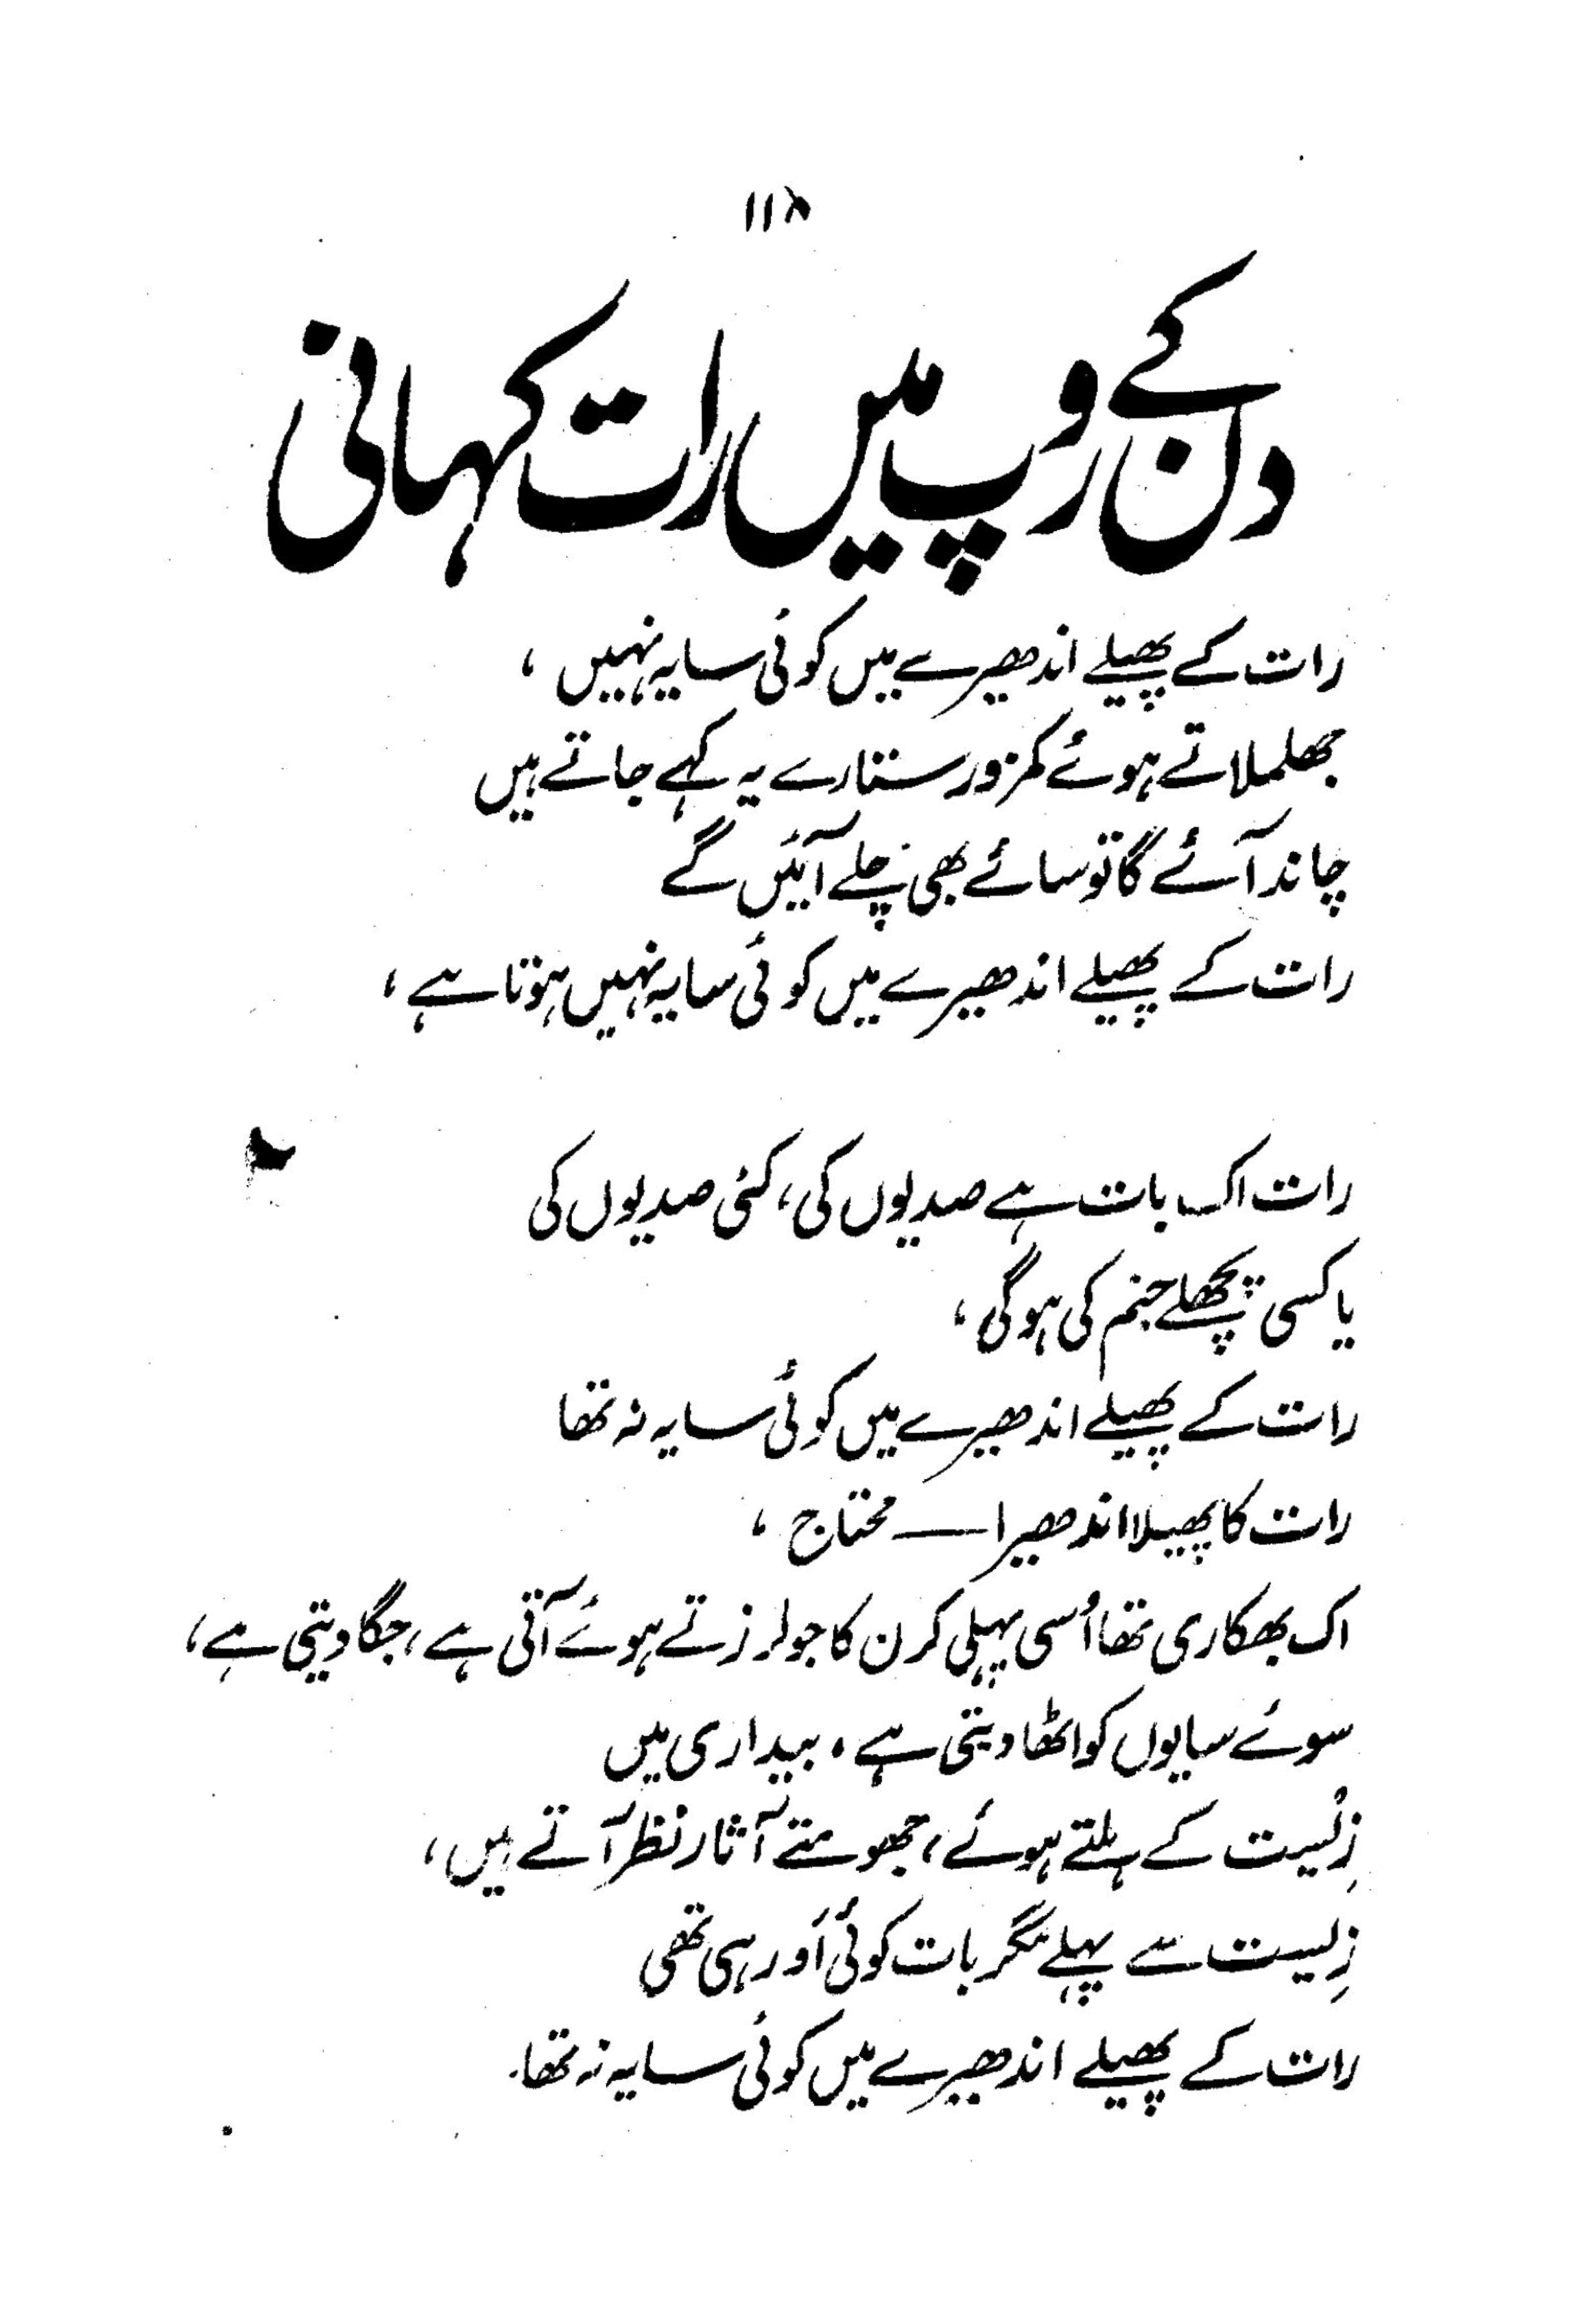 ۱۱۸
دن کے روپ میں رات کہانی
رات کے پھیلے اندھیرے میں کوئی سایہ نہیں ،
جھلملاتے ہوئے کمزور ستارے یہ کہے جاتے ہیں
چاند آئے گا تو سائے بھی چلے آئیں گے
رات کے پھیلے اندھیرے میں کوئی سایہ نہیں ہوتا ہے ،
رات اک بات ہے صدیوں کی، کئی صدیوں کی
یا کسی پچھلے جنم کی ہو گی ،
رات کے پھیلے اندھیرے میں کوئی سایہ نہ تھا
رات کا پھیلا اندھیرا — محتاج ،
اک بھکاری تھا اُسی پہلی کرن کا جو لرزتے ہوئے آتی ہے، جگا دیتی ہے،
سوئے سایوں کو اٹھا دیتی ہے ، بیداری میں
زِیست کے ہلتے ہوئے، جھومتے آثار نظر آتے ہیں،
زِیست سے پہلے مگر بات کوئی اَور ہی تھی
رات کے پھیلے اندھیرے میں کوئی سایہ نہ تھا.